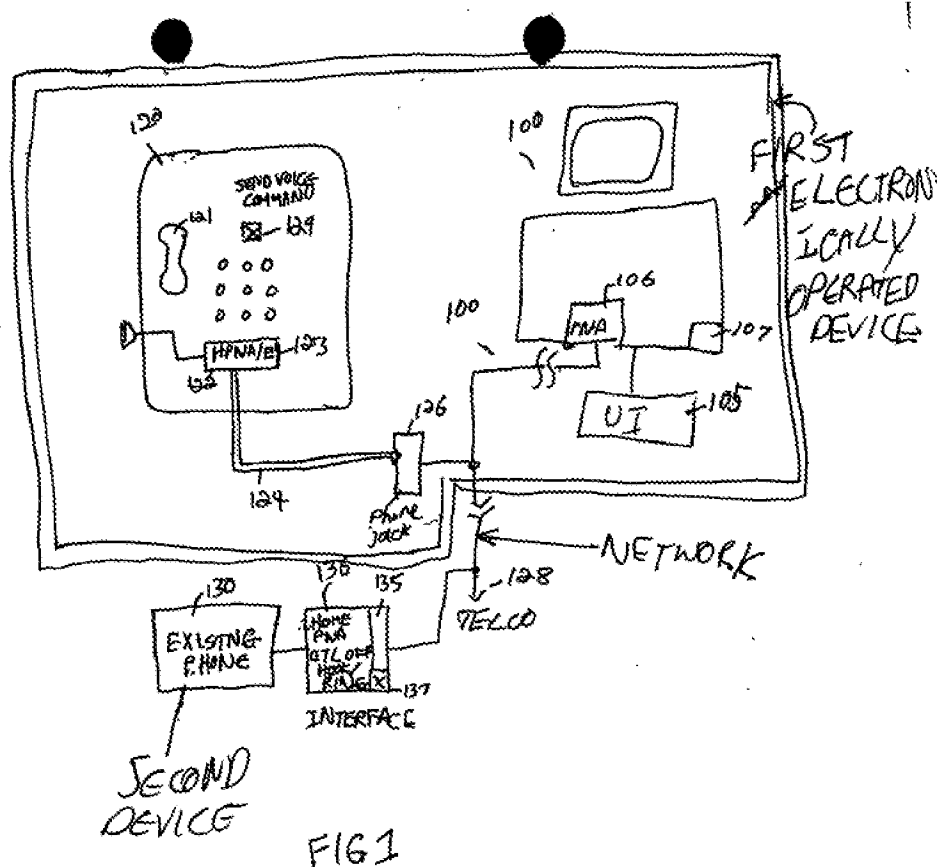 120
SEND VOICE
COMMAND
121
129
HPNA/E
123
122
124
126
Phone
Jack
100
100
106
PNA
107
UI
105
FIRST
ELECTRON
ICALLY
OPERATED
DEVICE
NETWORK
128
TELCO
130
EXISTING
PHONE
136
135
HOME
PNA
CTL OFF
HOOK/
RING
X
137
INTERFACE
SECOND
DEVICE
FIG 1